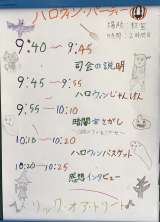 ハロウィンパーティー
場所:教室
時間:2時間目
9:40〜9:45
司会の説明
9:45〜9:55
ハロウィンじゃんけん
9:55〜10:10
暗闇宝さがし
10:10〜10:20
ハロウィンバスケット
10:20〜10:25
感想インタビュー
トリック オア トリート